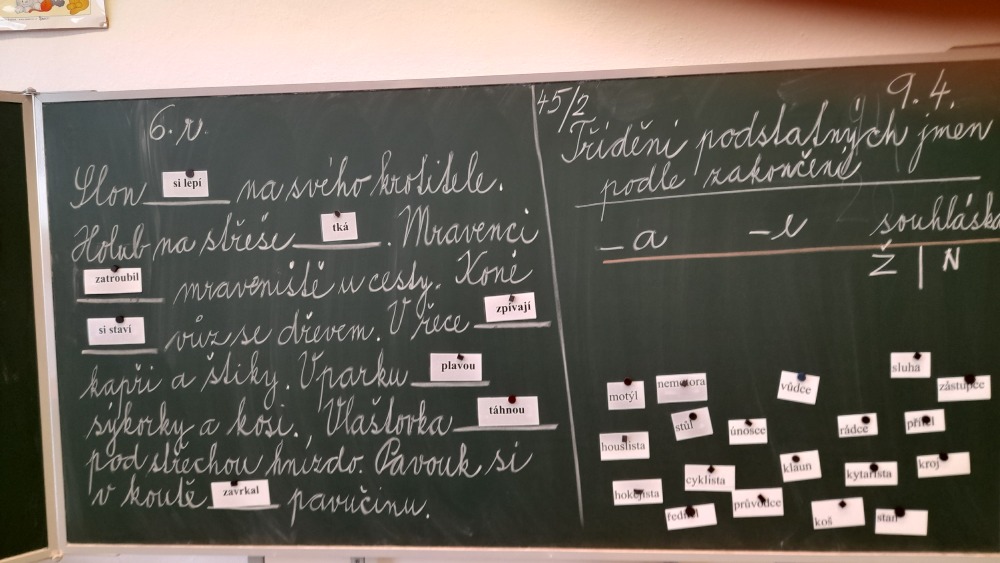 6. v.
Slon si lepí na svého krotitele.
Holub na střeše tká . Mravenci
zatroubil mraveniště u cesty. Koně
si staví vůz se dřevem. V řece zpívají
kapři a štiky. V parku plavou
sýkorky a kosi. Vlaštovka táhnou
pod střechou hnízdo. Pavouk si
v koutě zavrkal pavučinu.
45/2
9. 4.
Třídění podstatných jmen
podle zakončení
- a - e souhlásk
Ž | N
sluha
motýl nemotora vůdce zástupce
stůl únosce rádce přítel
houslista
cyklista klaun kytarista kroj
hokejista průvodce
ředitel koš stan